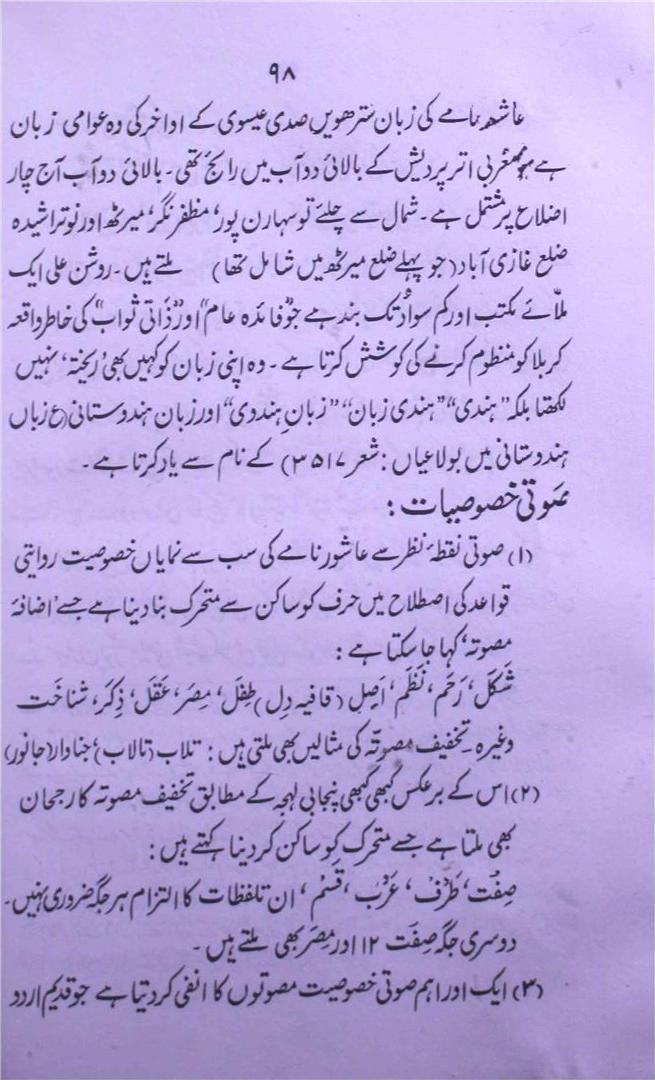 ۹۸
عاشور نامے کی زبان سترھویں صدی عیسوی کے اواخر کی وہ عوامی زبان
ہے جو مغربی اتر پردیش کے بالائی دوآب میں رائج تھی۔ بالائی دوآب آج چار
اضلاع پر مشتمل ہے۔ شمال سے چلئے تو سہارن پور، مظفر نگر، میرٹھ اور نو تراشیدہ
ضلع غازی آباد (جو پہلے ضلع میرٹھ میں شامل تھا) ملتے ہیں۔ روشن علی ایک
ملّائے مکتب اور کم سواد تک بند ہے جو "فائدہ عام" اور "ذاتی ثواب" کی خاطر واقعہ
کربلا کو منظوم کرنے کی کوشش کرتا ہے۔ وہ اپنی زبان کو کہیں بھی 'ریختہ' نہیں
لکھتا بلکہ "ہندی" "ہندی زبان" "زبانِ ہندوی" اور زبان ہندوستانی (ع زباں
ہندوستانی میں بولا عیاں : شعر ۳۵۱۷) کے نام سے یاد کرتا ہے۔
صوتی خصوصیات :
(۱) صوتی نقطۂ نظر سے عاشور نامے کی سب سے نمایاں خصوصیت روایتی
قواعد کی اصطلاح میں حرف کو ساکن سے متحرک بنا دینا ہے جسے 'اضافۂ
مصوتہ' کہا جا سکتا ہے :
شَکَل، رَحَم، نَظَم، اَصِل (قافیہ دِل) طِفَل، مِصَر، عَقَل، ذِکَر، شناخَت
وغیرہ۔ تخفیف مصوتہ کی مثالیں بھی ملتی ہیں : تلاب (تالاب) جناوار (جانور)
(۲) اس کے برعکس کبھی کبھی پنجابی لہجہ کے مطابق تخفیف مصوتہ کا رجحان
بھی ملتا ہے جسے متحرک کو ساکن کر دینا کہتے ہیں :
صِفْت، طَرْف، عَرْب، قَسْم، ان تلفظات کا التزام ہر جگہ ضروری نہیں۔
دوسری جگہ صِفَت ۱۲ اور مِصَر بھی ملتے ہیں۔
(۳) ایک اور اہم صوتی خصوصیت مصوتوں کا انفی کر دیتا ہے جو قدیم اردو